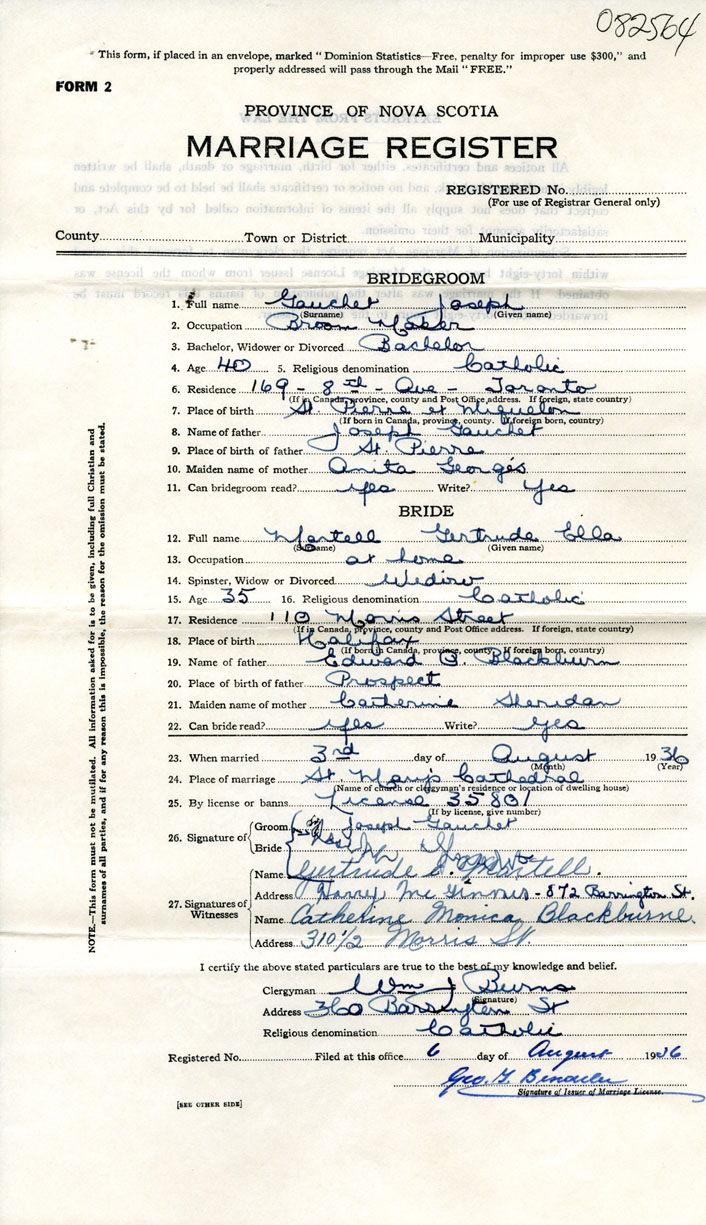 082564
" This form, if placed in an envelope, marked " Dominion Statistics—Free, penalty for improper use $300," and
properly addressed will pass through the Mail " FREE."
FORM 2
PROVINCE OF NOVA SCOTIA
MARRIAGE REGISTER
REGISTERED No.
(For use of Registrar General only)
County Town or District Municipality
BRIDEGROOM
1. Full name Gauchet Joseph
(Surname) (Given name)
2. Occupation Broom Maker
3. Bachelor, Widower or Divorced Bachelor
4. Age 40 5. Religious denomination Catholic
6. Residence 169 - 8th - Ave - Toronto
(If in Canada, province, county and Post Office address. If foreign, state country)
7. Place of birth St. Pierre et Miquelon
(If born in Canada, province, county. If foreign born, country)
8. Name of father Joseph Gauchet
9. Place of birth of father St. Pierre
10. Maiden name of mother Anita Georges
11. Can bridegroom read? yes Write? Yes
BRIDE
12. Full name Martell Gertrude Ella
(Surname) (Given name)
13. Occupation at home
14. Spinster, Widow or Divorced Widow
15. Age 35 16. Religious denomination Catholic
17. Residence 110 Morris Street
(If in Canada, province, county and Post Office address. If foreign, state country)
18. Place of birth Halifax
(If born in Canada, province, county. If foreign born, country)
19. Name of father Edward Blackburn
20. Place of birth of father Prospect
21. Maiden name of mother Catherine Sheridan
22. Can bride read? yes Write? yes
23. When married 3rd day of August 1936
(Month) (Year)
24. Place of marriage St. Mary's Cathedral
(Name of church or clergyman's residence or location of dwelling house)
25. By license or banns License 35801
(If by license, give number)
26. Signature of Groom Joseph Gauchet
Bride
Gertrude E. Martell.
27. Signatures of Witnesses
Name
Address Harry Mc Ginnis - 872 Barrington St.
Name Catherine Monica Blackburne.
Address 310 1/2 Morris St.
I certify the above stated particulars are true to the best of my knowledge and belief.
Clergyman Wm J Burns
(Signature)
Address 360 Barrington St
Religious denomination Catholic
Registered No. Filed at this office 6 day of August 1936
Geo.
Signature of Issuer of Marriage License.
[SEE OTHER SIDE]
NOTE.—This form must not be mutilated. All information asked for is to be given, including full Christian and
surnames of all parties, and if for any reason this is impossible, the reason for the omission must be stated.